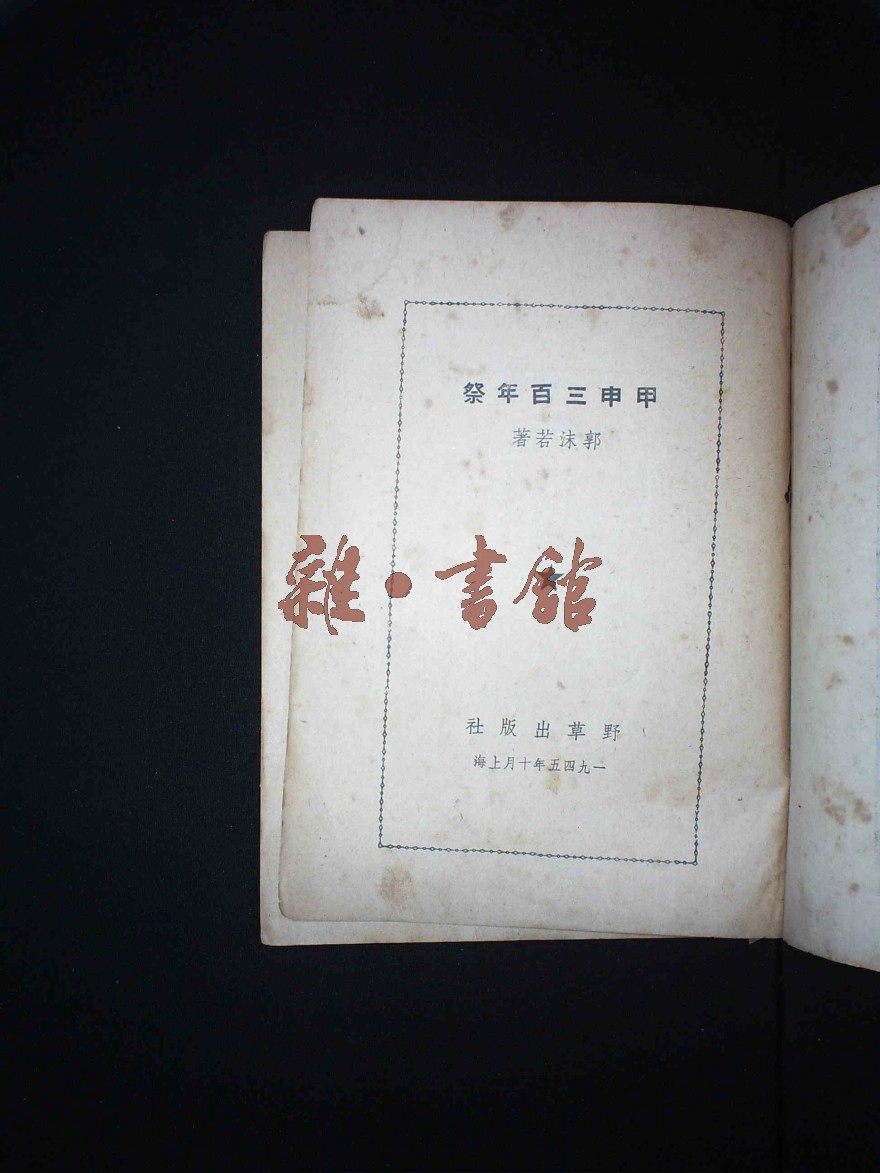 甲申三百年祭
郭沫若著
雜·書館
野草出版社
一九四五年十月上海